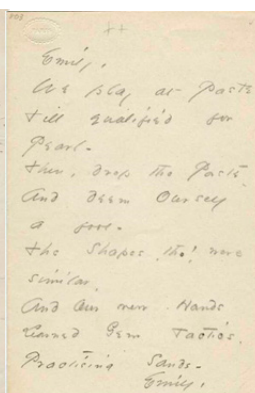 803
Emily.
We play at Paste
till qualified for
Pearl -
then, drop the Paste
And deem Ourself
a fool -
the Shapes, tho', were
similar
And our new Hands
learned Gem Tactics,
Practicing Sands -
Emily.